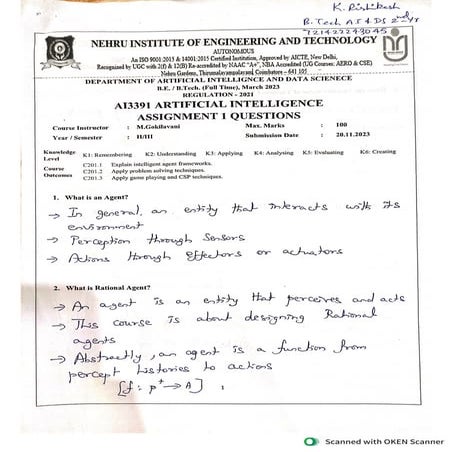 K. Rishikesh
B.Tech AI & DS 2nd Yr
721422243045
NEHRU INSTITUTE OF ENGINEERING AND TECHNOLOGY
AUTONOMOUS
An ISO 9001:2015 & 14001:2015 Certified Institution, Approved by AICTE, New Delhi,
Recognized by UGC with 2(f) & 12(B) Re-accredited by NAAC "A+", NBA Accredited (UG Courses: AERO & CSE)
Nehru Gardens, Thirumalayampalayam, Coimbatore – 641 105
DEPARTMENT OF ARTIFICIAL INTELLIGENCE AND DATA SCIENECE
B.E. / B.Tech. (Full Time), March 2023
REGULATION - 2021
AI3391 ARTIFICIAL INTELLIGENCE
ASSIGNMENT 1 QUESTIONS
Course Instructor : M.Gokilavani Max. Marks : 100
Year / Semester : II/III Submission Date : 20.11.2023
Knowledge Level K1: Remembering K2: Understanding K3: Applying K4: Analysing K5: Evaluating K6: Creating
Course Outcomes
C201.1 Explain intelligent agent frameworks.
C201.2 Apply problem solving techniques.
C201.3 Apply game playing and CSP techniques.
1. What is an Agent?
→ In general, an entity that interacts with its
environment
→ Perception through Sensors
→ Actions through effectors or actuators
2. What is Rational Agent?
→ An agent is an entity that perceives and acts
→ This course is about designing Rational
agents
→ Abstractly, an agent is a function from
percept histories to actions
[f: p* → A]
Scanned with OKEN Scanner